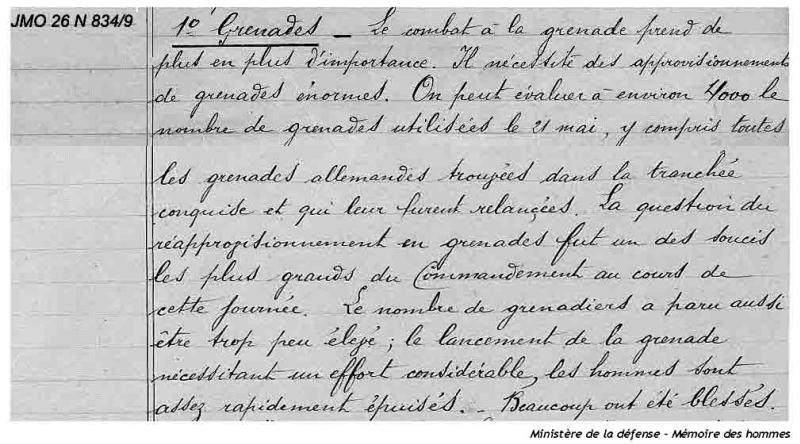 JMO 26 N 834/9
1º Grenades _ Le combat à la grenade prend de
plus en plus d'importance. Il nécessite des approvisionnements
de grenades énormes. On peut évaluer à environ 4000 le
nombre de grenades utilisées le 21 mai, y compris toutes
les grenades allemandes trouvées dans la tranchée
conquise et qui leur furent relancées. La question du
réapprovisionnement en grenades fut un des soucis
les plus grands du Commandement au cours de
cette journée. Le nombre de grenadiers a paru aussi
être trop peu élevé ; le lancement de la grenade
nécessitant un effort considérable, les hommes sont
assez rapidement épuisés. _ Beaucoup ont été blessés.
Ministère de la défense - Mémoire des hommes